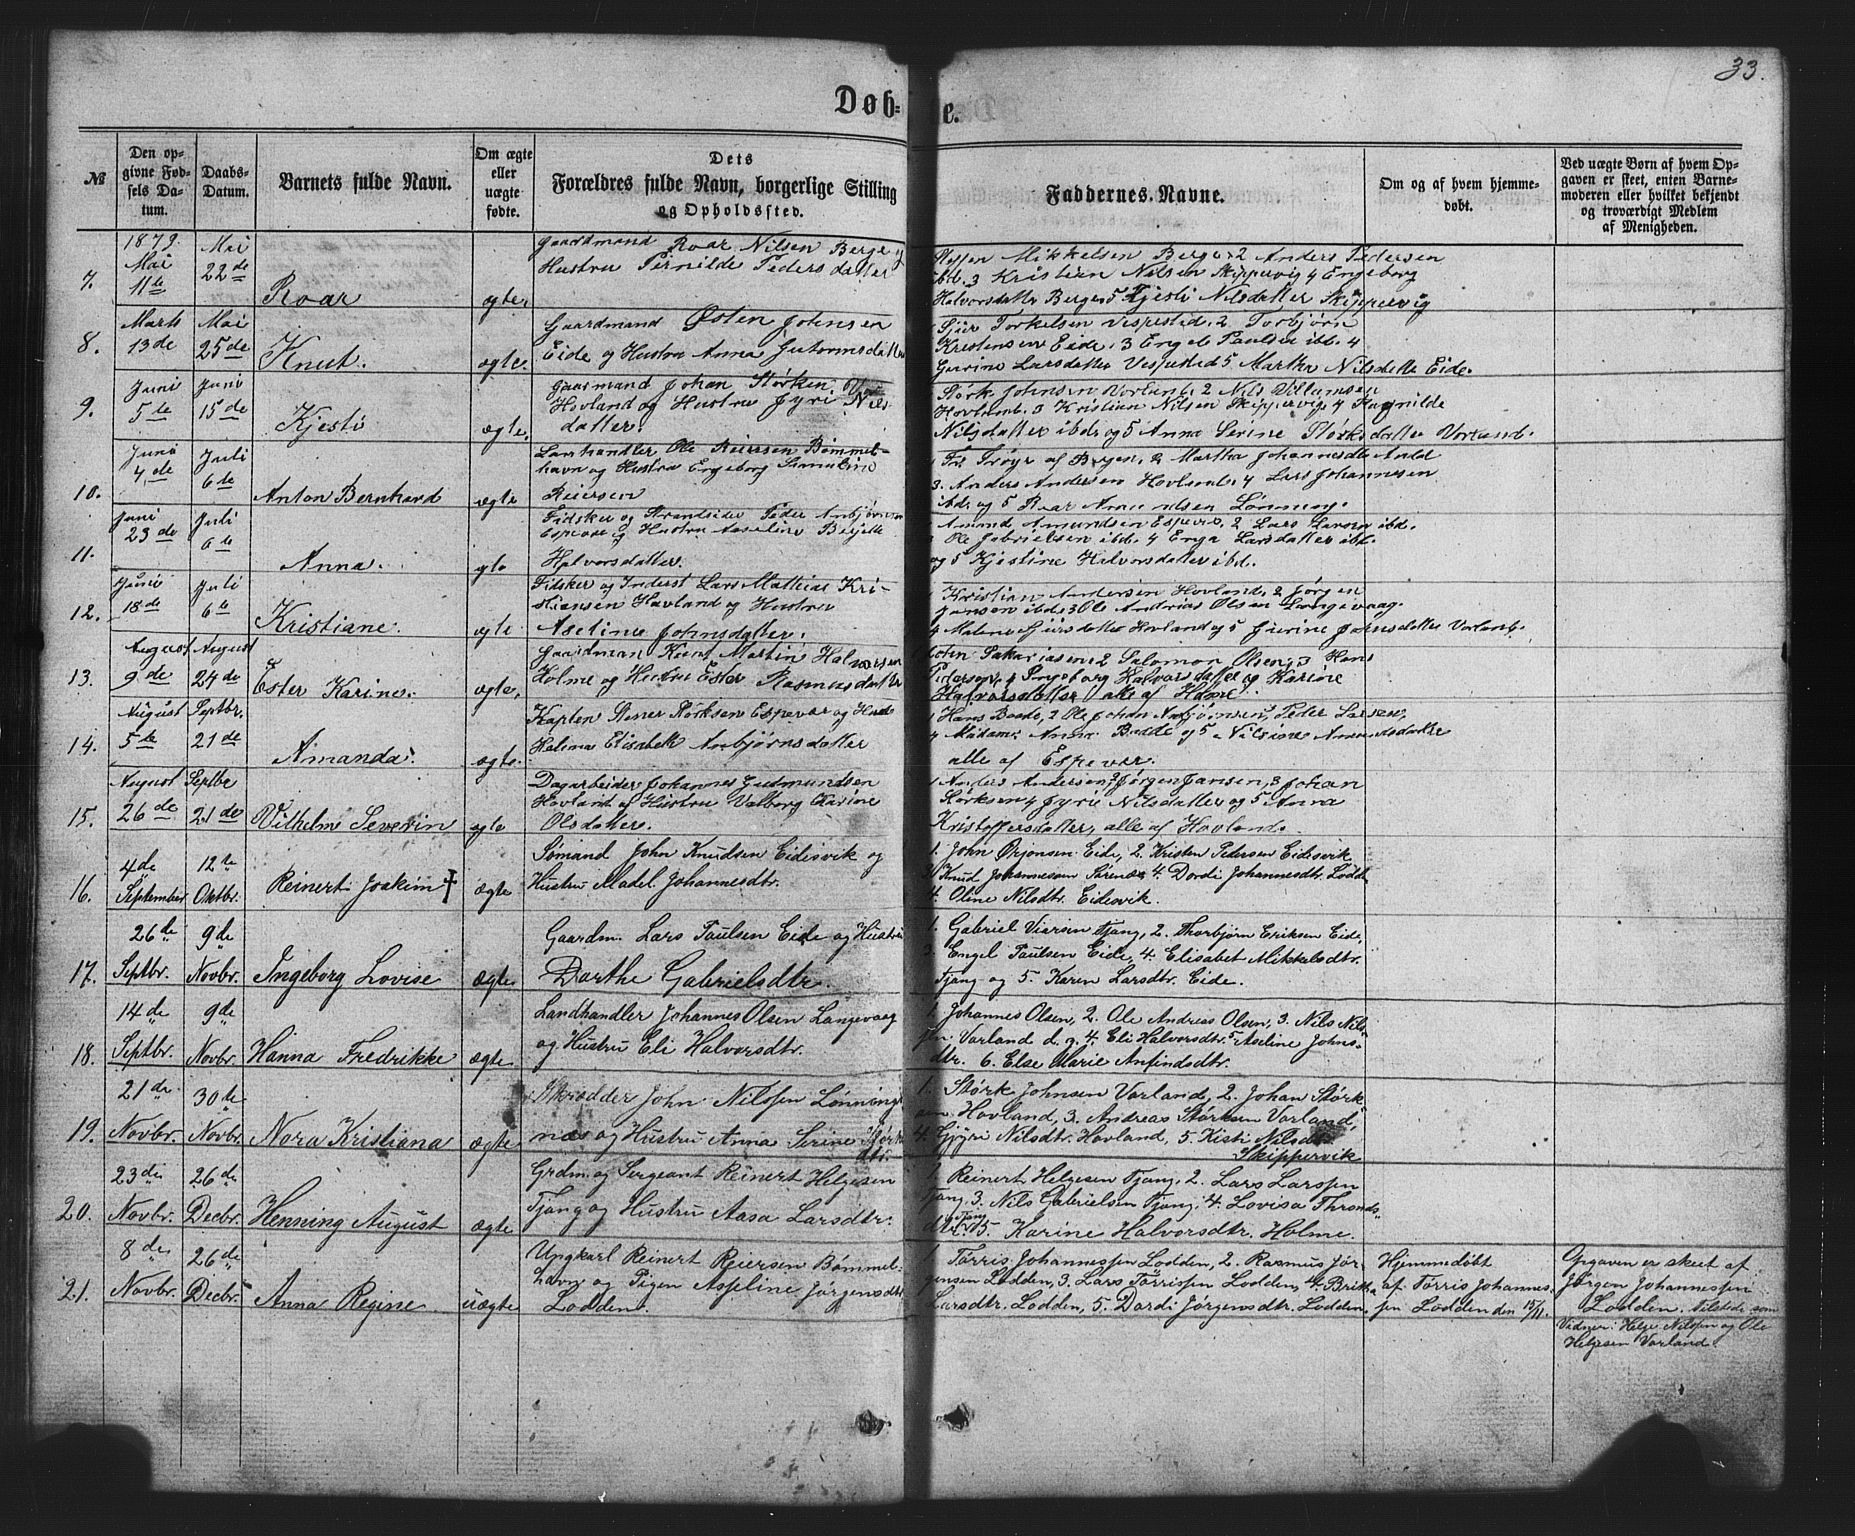 33.
Døb=
e.
№
Den op-
givne Fød-
sels Da-
tum.
Daabs-
Datum.
Barnets fulde Navn.
Om ægte
eller
uægte
fødte.
Dets
Forældres fulde Navn, borgerlige Stilling
og Opholdssted.
Faddernes Navne.
Om og af hvem hjemme-
døbt.
Ved uægte Børn af hvem Op-
gaven er skeet, enten Barne-
moderen eller hvilket bekjendt
og troværdigt Medlem
af Menigheden.
7.
1879.
Mai
11te
Mai
22de
Roar
ægte.
Gaardmand Roar Nilsen Berge og
Hustru Pernilde Pedersdatter
Mikkelsen Berge 2 Anders Pedersen
ibd. 3 Kristian Nilsen Skippevig 4 Engeborg
Halvorsdattr Berge 5 Kjesti Nilsdatter Skippevig
8.
Marts
13de
Mai
25de
Knut.
ægte.
Gaardmand Østen Johnsen
Eide og Hustru Anna Gutormsdatter
1 Sjur Torkelsen Vespestad, 2 Torbjørn
Kristensen Eide. 3 Engel Paulsen ibd. 4
Gurine Larsdatter Vespestad 5 Martha Nilsdatte Eide.
9.
Juni
5te
Juni
15de
Kjesti
ægte.
Gaarmand Johan Størksen
Hovland og Hustru Jyri Nils
datter.
Størk Johnsen Vorland, 2 Nils Villumsen
Hovland. 3 Kristian Nilsen Skippevig 4 Ragnilde
Nilsdatter ibd. og 5 Anna Serine Storksdatter Vorland.
10.
Juni
4de
Juli
6te
Anton Bernhard
ægte
Lanhandler Ole Reiersen Bømmel-
havn og Hustru Engeborg Semeline
Reiersen
1 Fr. Trøye af Bergen, 2 Martha Johannesdtr
3. Anders Andersen Hovland, 4 Lars Johannesen
ibd. og 5 Roar Amundsen Lønning.
11.
Juni
23de
Juli
6te
Anna.
gte
Fidsker og Strandsider Peder Anbjørnsen
Espevær og Hustru Aaseline Berjitte
Halvorsdatter.
Amund Amundsen Espevær, 2 Lars Larsen ibd.
Ole Gabrielsen ibd. 4 Enga Larsdatter ibd.
og 5 Kjestine Halvorsdatter ibd.
12.
Juni
18de
Juli
6te
Kristiane.
ægte.
Fidsker og Inderst Lars Mathias Kri-
stiansen Hovland og Hustru
Aseline Johnsdatter.
1 Kristian Andersen Hovland, 2 Jørgen
Jansen ibd. 3 Ole Andrias Olsen Langevaag.
4 Malene Sjursdatter Hovland og 5 Gurine Johnsdatter Vorland.
13.
August
9de
August
24de
Ester Karine.
ægte.
Gaardman Knut Martin Halvorsen
Holme og Hustru Ester Rasmusdatter
John Sakariasen 2 Salomon Olsen, 3 Hans
Pedersen, 4 Ingeborg Halvorsdatter og Karine
Halvorsdatter alle af Holme.
14.
August
5te
Septbr.
21de
Amanda.
ægte.
Kapten Stener Størksen Espevær og Hus
Halina Elisabek Anbjørnsdatter
1 Hans Baade, 2 Ole Johan Anbjørnsen, Peder Larsen,
4 Madame Anna Baade og 5 Nilsine Amundsdatte
alle af Espevær.
15.
August
26de
Septbe
21de
Vilhelm Severin
gte
Dagarbeider Johannes Gudmundsen
Hovland og Hustru Valborg Karine
Olsdatter.
1 Anders Andersen, 2 Jørgen Jansen, 3 Johan
Størksen 4 Jyri Nilsdatter og 5 Anna
Kristoffersdatter, alle af Hovland.
16.
4de
September
12te
Oktbr.
Reinert Joakim †
ægte
Sømand John Knudsen Eidesvik og
Hustru Madel Johannesdtr.
1. John Ørjonsen Eide, 2. Kristen Pedersen Eidesvik
3. Knud Johannesen Sirenæs 4. Dordi Johannesdtr. Lodde
4. Oline Nilsdtr. Eidesvik.
17.
26de
Septbr.
9de
Novbr.
Ingeborg Lovise
ægte
Gaardm. Lars Paulsen Eide og Hustru
Dorthe Gabrielsdtr.
1. Gabriel Viersen Tjang, 2. Thorbjørn Eriksen Eide,
3. Engel Paulsen Eide, 4. Elisabet Mikkelsdtr.
Tjang og 5. Karen Larsdtr. Eide.
18.
14de
Septbr.
9de
Novbr.
Hanna Fredrikke
ægte
Landhandler Johannes Olsen Langevaag
og Hustru Eli Halvorsdtr.
1. Johannes Olsen, 2. Ole Andreas Olsen, 3. Nils Nils-
sen Vorland d. y. 4. Eli Halvorsdtr. 5. Aseline Johns-
dtr. 6. Else Marie Anfindsdtr.
19.
21de
Novbr.
30te
Novbr.
Nora Kristiana
ægte
Skrædder John Nilssen Lønnings
næs og Hustru Anna Serine Størks
dtr.
1. Størk Johnsen Vorland, 2. Johan Størk
sen Hovland, 3. Andreas Størksen Vorland,
4. Gjyri Nilsdtr. Hovland, 5. Kisti Nilsdtr.
Skippervik
20.
23de
Novbr.
26de
Decbr.
Henning August
ægte
Grdm. og Sergeant Reinert Helgesen
Tjang og Hustru Aasa Larsdtr.
1. Reinert Helgesen Tjang, 2. Lars Larssen
Tjang, 3. Nils Gabrielsen Tjang, 4. Lovisa Thronds-
dtr. Tjang 5. Karine Halvorsdtr. Holme.
21.
8de
Novbr.
26de
Decbr.
Anna Regine
uægte
Ungkarl Reinert Reiersen Bømmel-
havn og Pigen Asseline Jørgensdtr
Lodden.
1. Tørris Johannessen Lodden, 2. Rasmus Jør-
gensen Lodden, 3. Lars Tørrissen Lodden, 4. Britha
Larsdtr. Lodden, 5. Dordi Jørgensdtr. Lodden.
Hjemmedøbt
af Tørris Johannes-
sen Lodden den 15/11.
Opgaven er skeet af
Jørgen Johannessen
Lodden. Tilstede som
Vidner: Helge Nilssen og Ole
Helgesen Vorland.